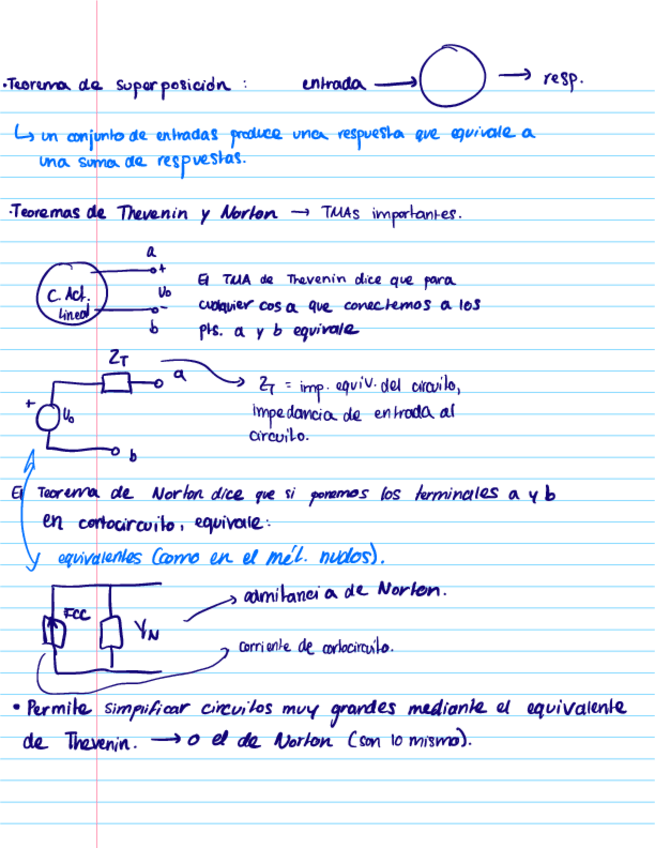 ·Teorema de superposición : entrada → resp.
↳ un conjunto de entradas produce una respuesta que equivale a
una suma de respuestas.
·Teoremas de Thevenin y Norton → TMAs importantes.
a
+
C. Act.
Lineal
U₀
-
b
El TMA de Thevenin dice que para
cualquier cosa que conectemos a los
pts. a y b equivale
Z_T
a
+
U₀
b
Z_T = imp. equiv. del circuito,
impedancia de entrada al
circuito.
El Teorema de Norton dice que si ponemos los terminales a y b
en cortocircuito, equivale:
y equivalentes (como en el mét. nudos).
Icc
Y_N
admitancia de Norton.
corriente de cortocircuito.
• Permite simpificar circuitos muy grandes mediante el equivalente
de Thevenin. → o el de Norton (son lo mismo).